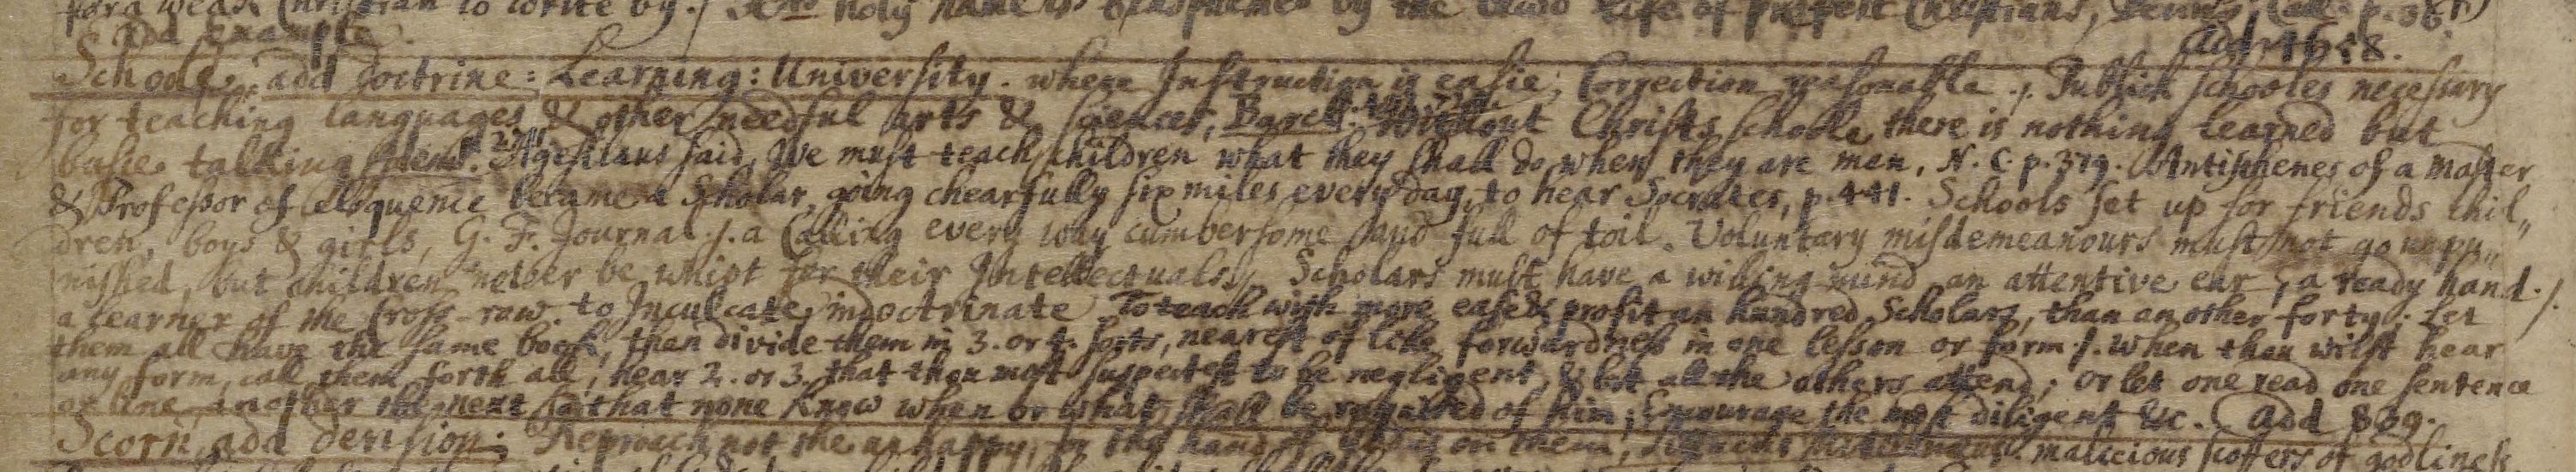 for a weak Christian to write by ./ holy name is blasphemed by the lewd life of present Christians, p. 36
add example.
add 1658.
Schoole, add doctrine: Learning: University. where Instruction is easie; Correction reasonable ./. Publick schooles necessary
for teaching languages & other needful arts & sciences, Barcl. without Christs schoole there is nothing learned but
busie talking. Agesilaus said, We must teach children what they shall do when they are men. N. C. p. 379. Antisthenes of a master
& Professor of eloquence became a Scholar, going chearfully six miles every day, to hear Socrates, p. 441. Schools set up for friends chil„
dren, boys & girls, G. F. Journal ./. a Calling every way cumbersome and full of toil. Voluntary misdemeanours must not go unpu„
nished, but children never be whipt for their Intellectuals, Scholars must have a willing mind an attentive ear, a ready hand ./.
a learner of the Cross-row. to Inculcate, indoctrinate. To teach with more ease & profit an hundred Scholars, than an other forty; Let
them all have the same book, then divide them in 3. or 4. sorts, nearest of like forwardness in one lesson or form ./. when thou wilst hear
any form, call them forth all, hear 2. or 3. that thou most suspectest to be negligent, & let all the others attend; or let one read one sentence
or line another the next so that none know when or what shall be required of him; Encourage the most diligent &c. add 839.
Scorn, add derision: Reproach not the unhappy, for the hand of on them, malicious scoffers of godliness